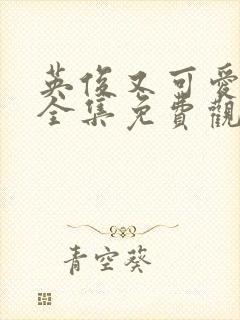 英俊又可愛
全集免費觀
青空葵